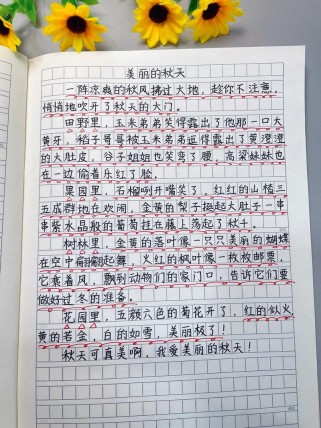 美丽的秋天
一阵凉爽的秋风拂过大地，趁你不注意，
悄悄地吹开了秋天的大门。
田野里，玉米弟弟笑得露出了他那一口大
黄牙，稻子哥哥被玉米弟弟逗得露出了黄澄澄
的大肚皮，谷子姐姐也笑弯了腰，高粱妹妹也
在一边偷着乐红了脸。
果园里，石榴咧开嘴笑了，红红的山楂三
五成群地在欢闹，金黄的梨子挺起大肚子一串
串紫水晶般的葡萄挂在藤上荡起了秋千。
树林里，金黄的落叶像一只只美丽的蝴蝶
在空中翩翩起舞，火红的枫叶像一枚枚邮票，
它乘着风，飘到动物们的家门口，告诉它们要
做好过冬的准备。
花园里，五颜六色的菊花开了，红的似火
黄的若金，白的如雪，美丽极了！
秋天可真美啊，我爱美丽的秋天！